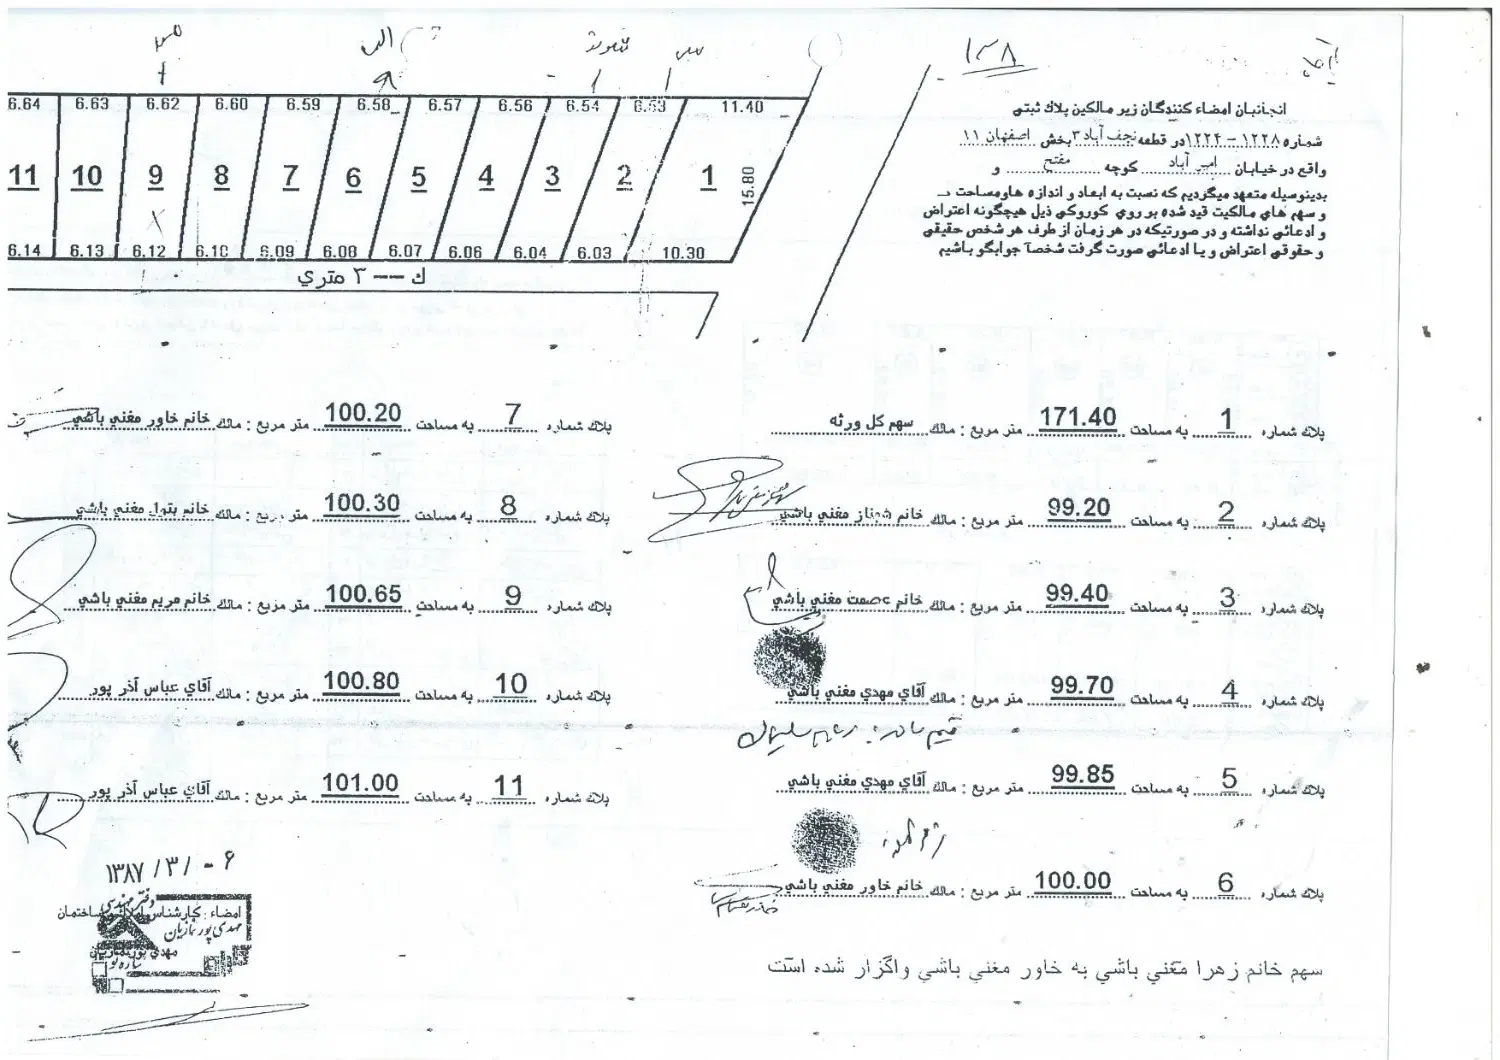 ۱۳۸
اینجانبان امضاء کنندگان زیر مالکین پلاک ثبتی
شماره ۱۲۲۸ - ۱۲۲۴ در قطعه نجف آباد ۳ بخش ۱۱ اصفهان
واقع در خیابان امیر آباد کوچه مفتح و
بدینوسیله متعهد میگردیم که نسبت به ابعاد و اندازه ها و مساحت
و سهم های مالکیت قید شده بر روی کوروکی ذیل هیچگونه اعتراض
و ادعائی نداشته و در صورتیکه در هر زمان از طرف هر شخص حقیقی
و حقوقی اعتراض و یا ادعائی صورت گرفت شخصاً جوابگو باشیم
6.64 6.63 6.62 6.60 6.59 6.58 6.57 6.56 6.54 6.53 11.40
11 10 9 8 7 6 5 4 3 2 1 15.80
6.14 6.13 6.12 6.10 6.09 6.08 6.07 6.06 6.04 6.03 10.30
ك --- ۳ متري
پلاك شماره 1 به مساحت 171.40 متر مربع : مالك سهم كل ورثه
پلاك شماره 2 به مساحت 99.20 متر مربع : مالك خانم شهناز مغني باشي
پلاك شماره 3 به مساحت 99.40 متر مربع : مالك خانم عصمت مغني باشي
پلاك شماره 4 به مساحت 99.70 متر مربع : مالك آقاي مهدي مغني باشي
پلاك شماره 5 به مساحت 99.85 متر مربع : مالك آقاي مهدي مغني باشي
پلاك شماره 6 به مساحت 100.00 متر مربع : مالك خانم خاور مغني باشي
سهم خانم زهرا مغني باشي به خاور مغني باشي واگزار شده است
پلاك شماره 7 به مساحت 100.20 متر مربع : مالك خانم خاور مغني باشي
پلاك شماره 8 به مساحت 100.30 متر مربع : مالك خانم بتول مغني باشي
پلاك شماره 9 به مساحت 100.65 متر مربع : مالك خانم مريم مغني باشي
پلاك شماره 10 به مساحت 100.80 متر مربع : مالك آقاي عباس آذر پور
پلاك شماره 11 به مساحت 101.00 متر مربع : مالك آقاي عباس آذر پور
۱۳۸۷/۳/۰۶
دفتر مهندسی
امضاء : کارشناس
مهدی پور نمازیان